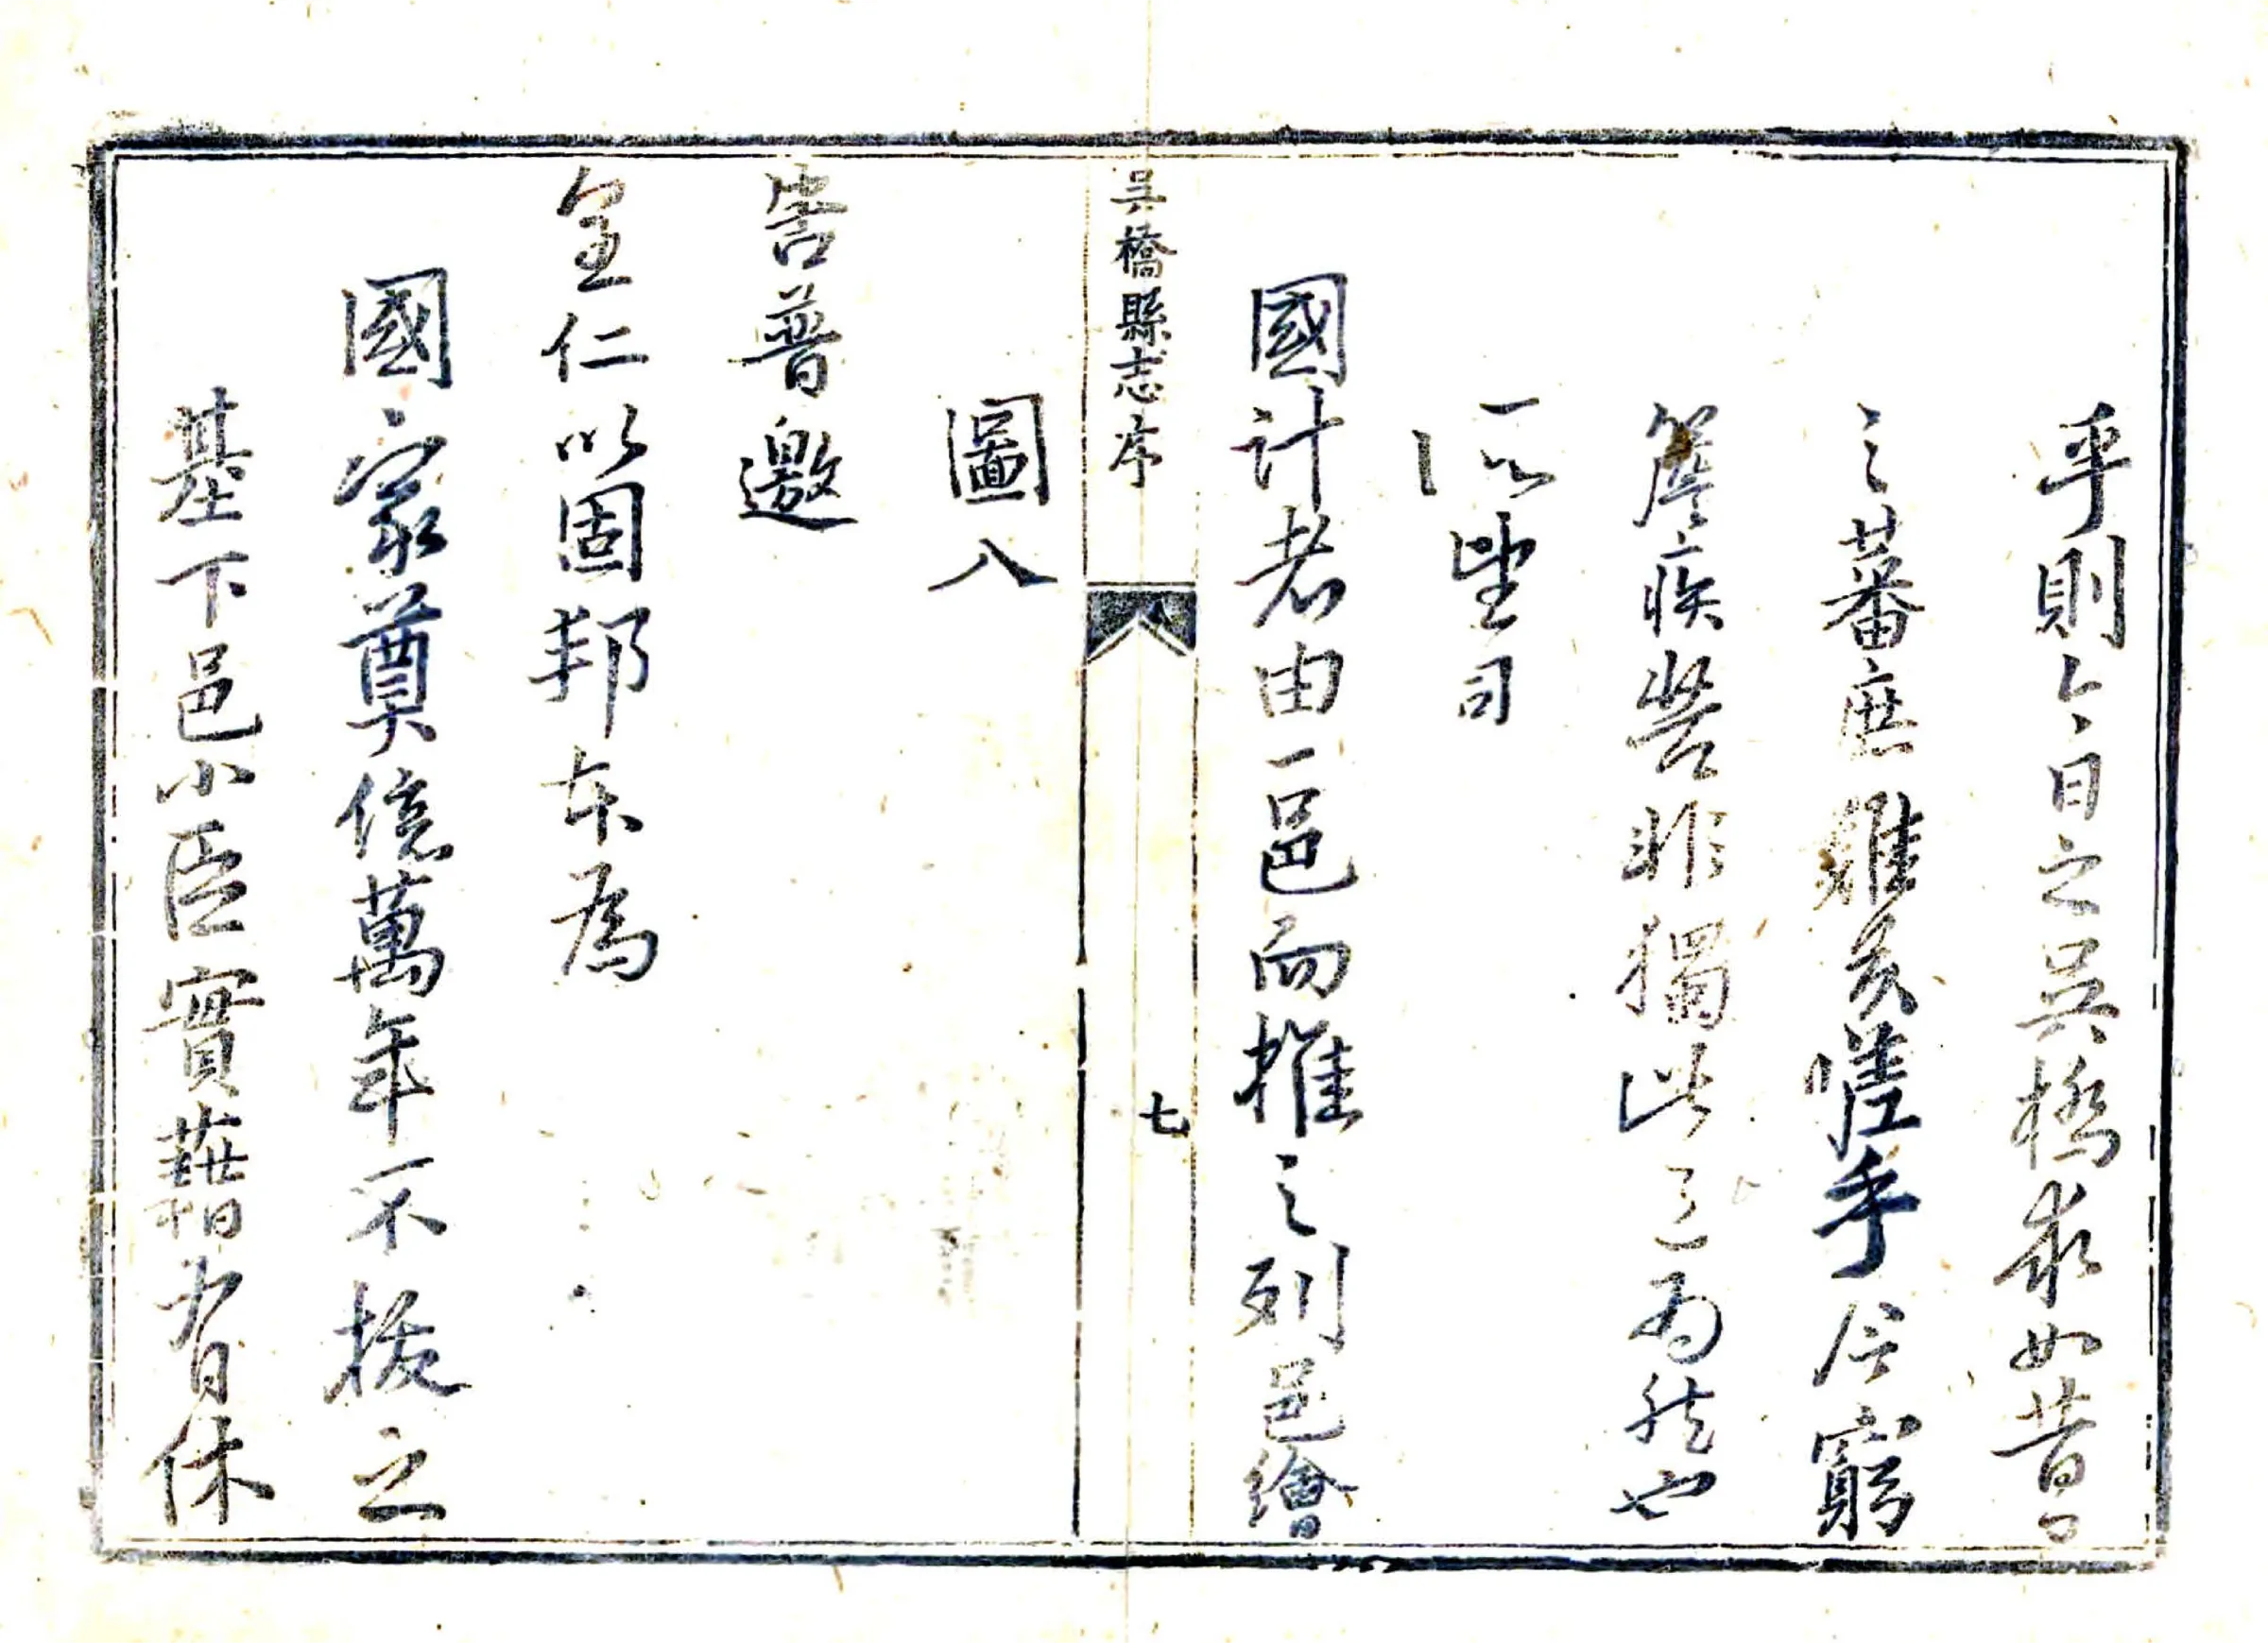 乎則今日之吳橋求如昔日
之蕃庶難矣嗟乎今窮
簷疾苦非獨此邑為然也
所望司
國計者由一邑而推之列邑繪
吳橋縣志序
七
圖入
告普邀
至仁以固邦本為
國家奠億萬年不拔之
基下邑小臣實藉有休